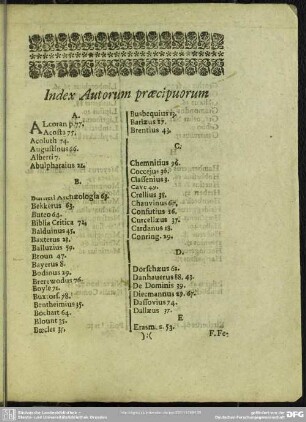 Index Autorum præcipuorum
A.
ALcoran p.77.
Acosta 75.
Acoluth 74.
Augustinus 86.
Alberti 7.
Abulpharaius 22.
B.
Burnet Archæologia 63.
Bekkerus 63.
Buteo 64.
Biblia Critica 72.
Balduinus 45.
Baxterus 21.
Balluzius 59.
Broun 47.
Bayerus 8.
Bodinus 29.
Brerewodus 76.
Boyle 71.
Buxtorf. 78.
Bentheimius 35.
Bochart 64.
Blount 35.
Bæcler 35.
Busbequius 13.
Barlæus 27.
Brentius 43.
C.
Chemnitius 36.
Coccejus 36.
Classenius 3.
Cave 40.
Crellius 35.
Chauvinus 67.
Confutius 26.
Curcellæus 37.
Cardanus 18.
Conring. 29.
D.
Dorschæus 62.
Danhauerus 88. 43.
De Dominis 39.
Diecmannus 29. 67.
Dassovius 74.
Dallæus 37.
E
Erasm. 2. 53.
):(
F. Fe-